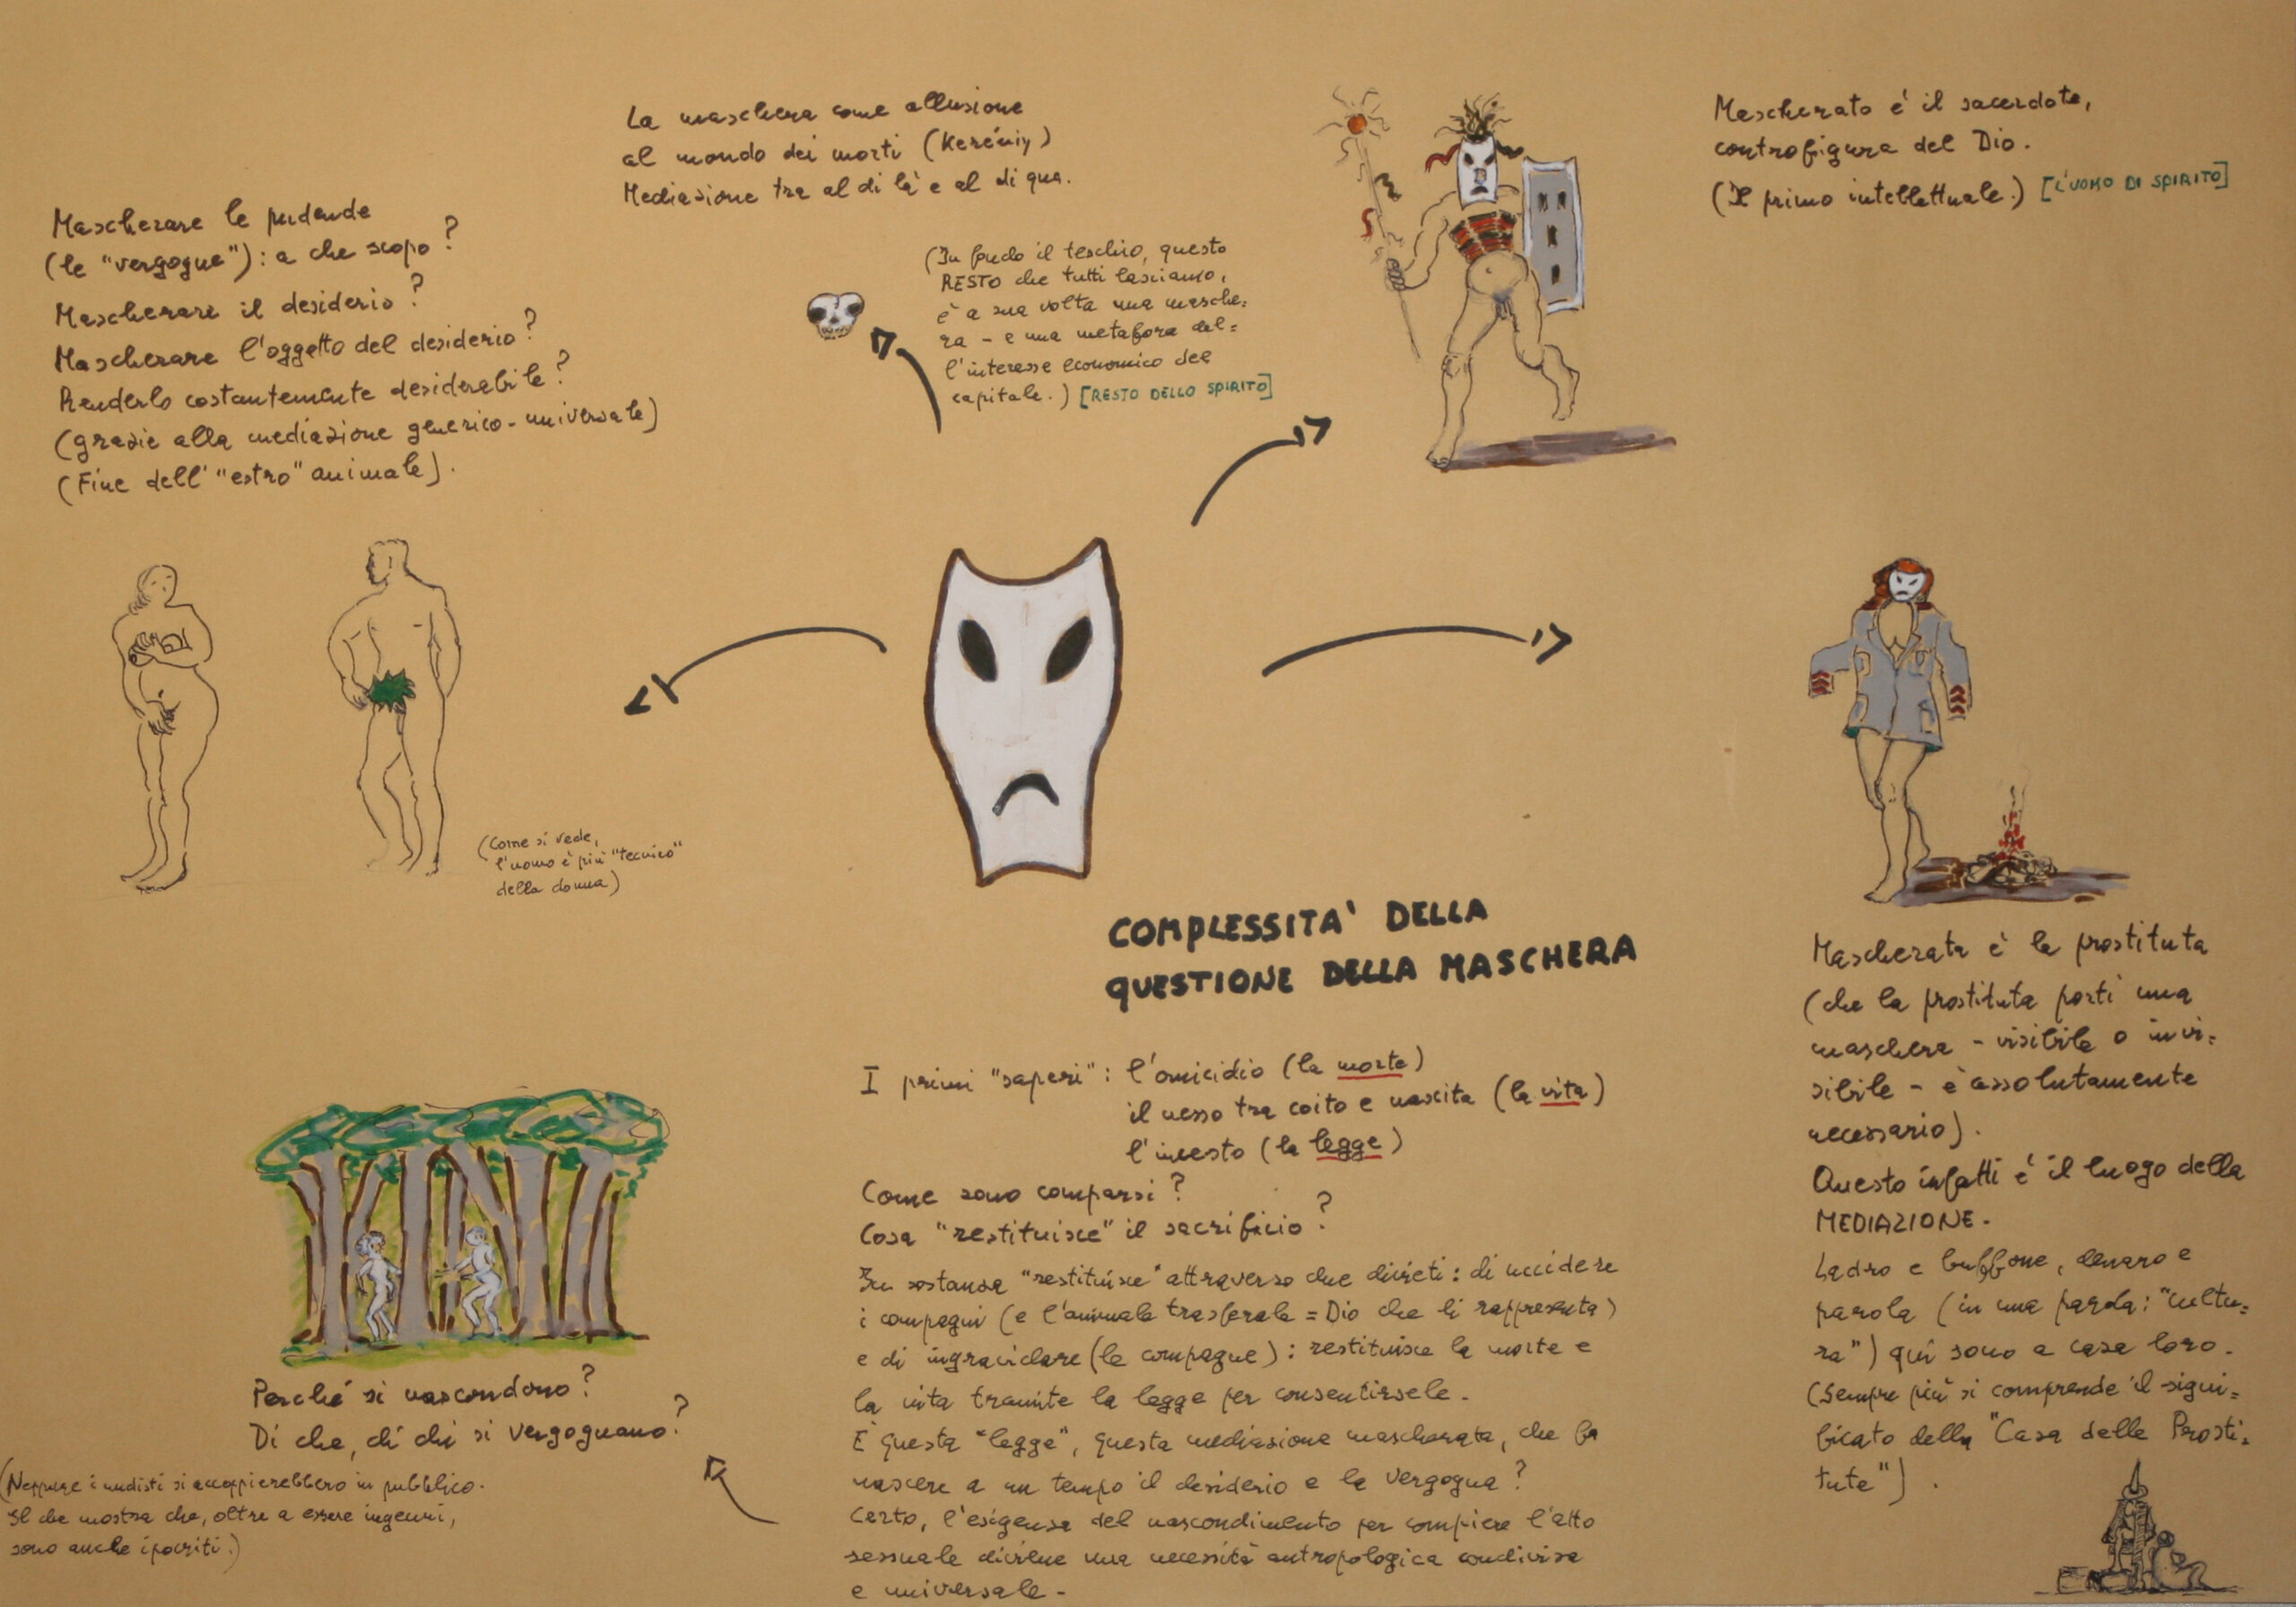 La maschera come allusione
al mondo dei morti (Kerényi)
Mediazione tra al di là e al di qua.
Mascherato è il sacerdote,
controfigura del Dio.
(Il primo intellettuale.) [L'UOMO DI SPIRITO]
Mascherare le pudende
(le "vergogne"): a che scopo?
Mascherare il desiderio?
Mascherare l'oggetto del desiderio?
Renderlo costantemente desiderabile?
(grazie alla mediazione generico-universale)
(Fine dell'"estro" animale).
(In fondo il teschio, questo
RESTO che tutti lasciamo,
è a sua volta una masche=
ra - e una metafora del=
l'interesse economico del
capitale.) [RESTO DELLO SPIRITO]
(Come si vede,
l'uomo è più "tecnico"
della donna)
COMPLESSITA' DELLA
QUESTIONE DELLA MASCHERA
I primi "saperi": l'omicidio (la morte)
il nesso tra coito e nascita (la vita)
l'incesto (la legge)
Come sono comparsi?
Cosa "restituisce" il sacrificio?
In sostanza "restituisce" attraverso due divieti: di uccidere
i compagni (e l'animale = Dio che li rappresenta)
e di ingravidare (le compagne): restituisce la morte e
la vita tramite la legge per consentirsele.
È questa "legge", questa mediazione mascherata, che fa
nascere a un tempo il desiderio e la vergogna?
Certo, l'esigenza del nascondimento per compiere l'atto
sessuale diviene una necessità antropologica condivisa
e universale-
Mascherata è la prostituta
(che la prostituta porti una
maschera - visibile o invi=
sibile - è assolutamente
necessario).
Questo infatti è il luogo della
MEDIAZIONE.
Ladro e buffone, denaro e
parola (in una parola: "cultu=
ra") qui sono a casa loro.
(Sempre più si comprende il signi=
ficato della "Casa delle Prosti=
tute").
Perché si nascondono?
Di che, di chi si vergognano?
(Neppure i nudisti si accoppierebbero in pubblico.
Il che mostra che, oltre a essere ingenui,
sono anche ipocriti.)